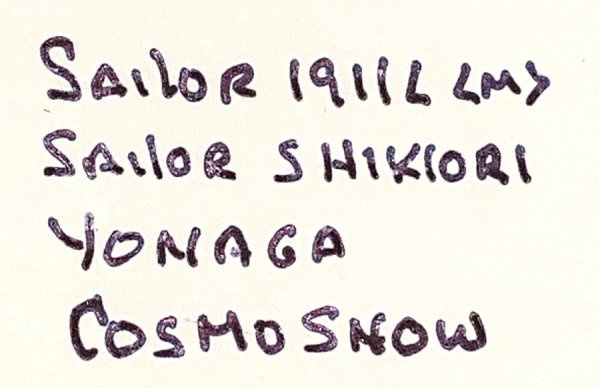 SAILOR 1911L <M>
SAILOR SHIKIORI
YONAGA
COSMO SNOW